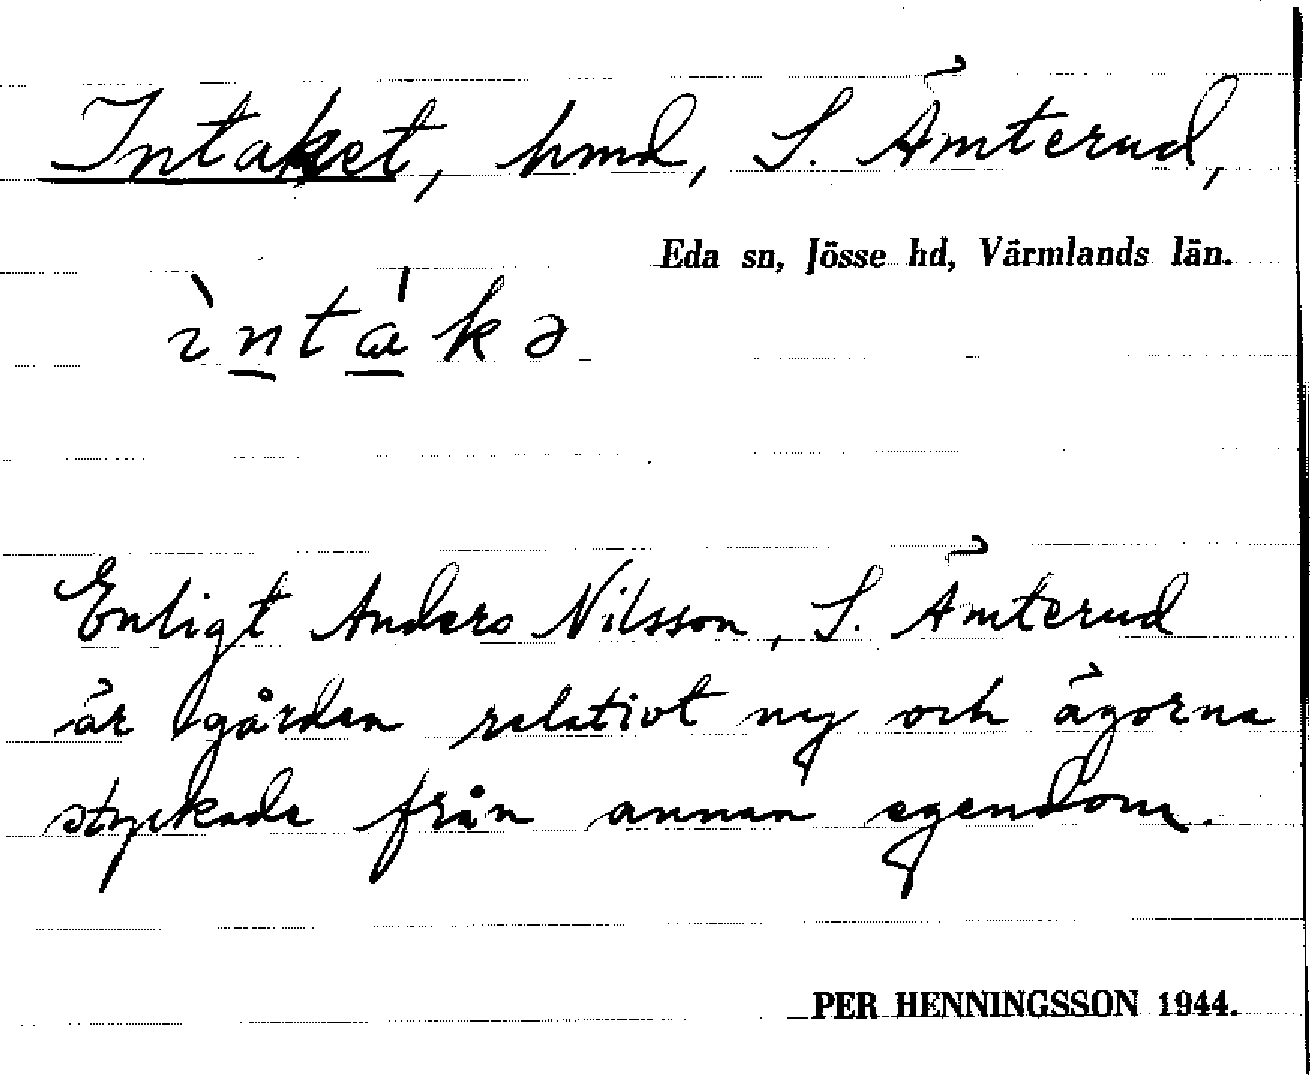 Intaket, hmd, S. Ämterud,
Eda sn, Jösse hd, Värmlands län.
ìntákə
Enligt Anders Nilsson, S. Ämterud
är gården relativt ny och ägorna
styckade från annan egendom.
PER HENNINGSSON 1944.